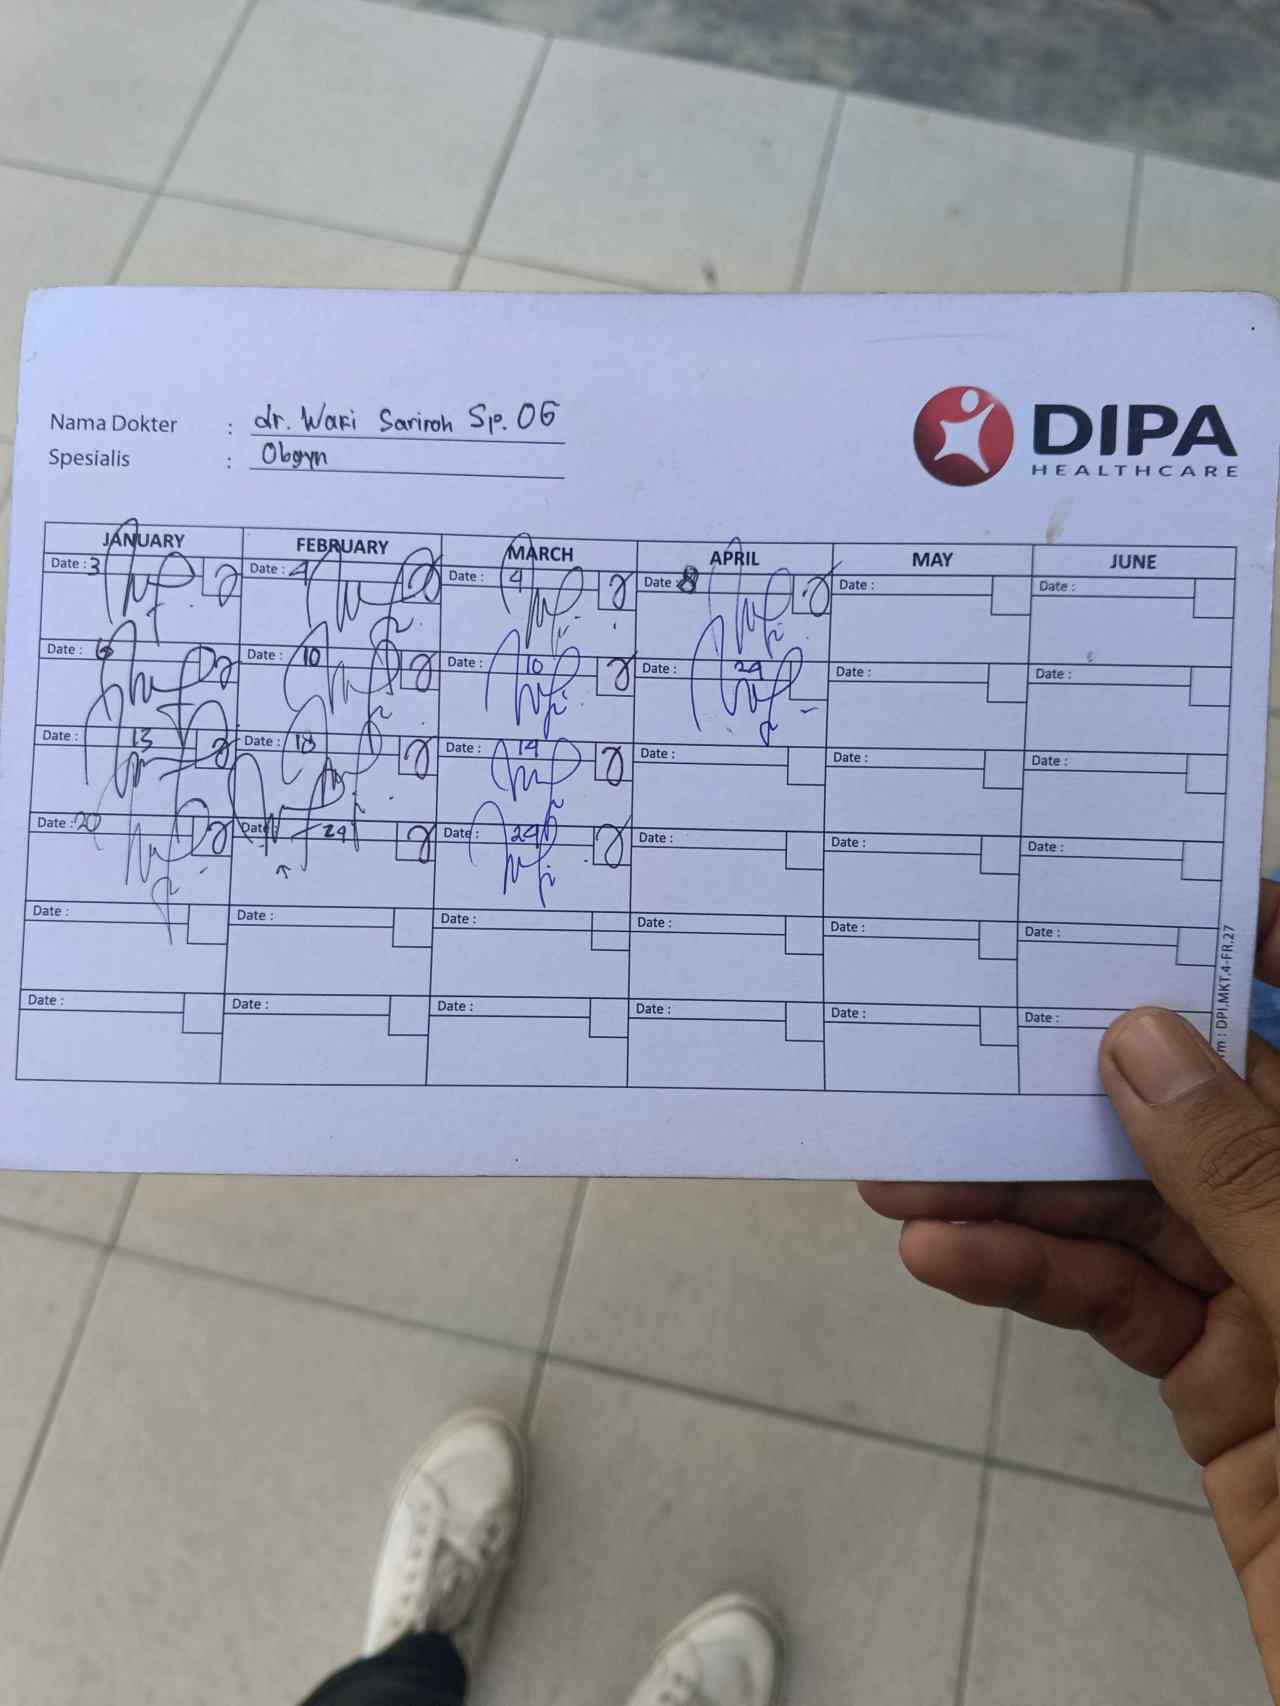 Nama Dokter : dr. Waki Sariroh Sp. OG
Spesialis : Obgyn
DIPA
HEALTHCARE
JANUARY FEBRUARY MARCH APRIL MAY JUNE
Date : 3 Date : 4 Date : 4 Date : 8 Date : Date :
Date : 6 Date : 10 Date : 10 Date : 24 Date : Date :
Date : 13 Date : 18 Date : 14 Date : Date : Date :
Date : 20 Date : 24 Date : 24 Date : Date : Date :
Date : Date : Date : Date : Date : Date :
Date : Date : Date : Date : Date : Date :
: DPI.MKT.4-FR.27